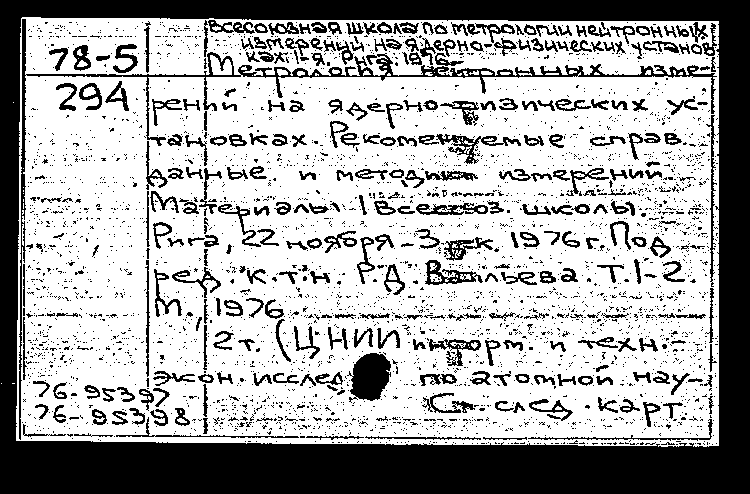 Всесоюзная школа по метрологии нейтронных
измерений на ядерно-физических установ
ках. I-я. Рига. 1976.
78-5
Метрология нейтронных изме-
294
рений на ядерно-физических ус-
тановках. Рекомендуемые справ.
данные и методики измерений.
Материалы I Всесоюз. школы.
Рига, 22 ноября - 3 дек. 1976 г. Под
ред. к.т.н. Р.Д. Васильева. Т. I-2.
М., 1976
2 т. (ЦНИИ информ. и техн.-
экон. исслед. по атомной нау-
76-95397
76-95398
См. след. карт.